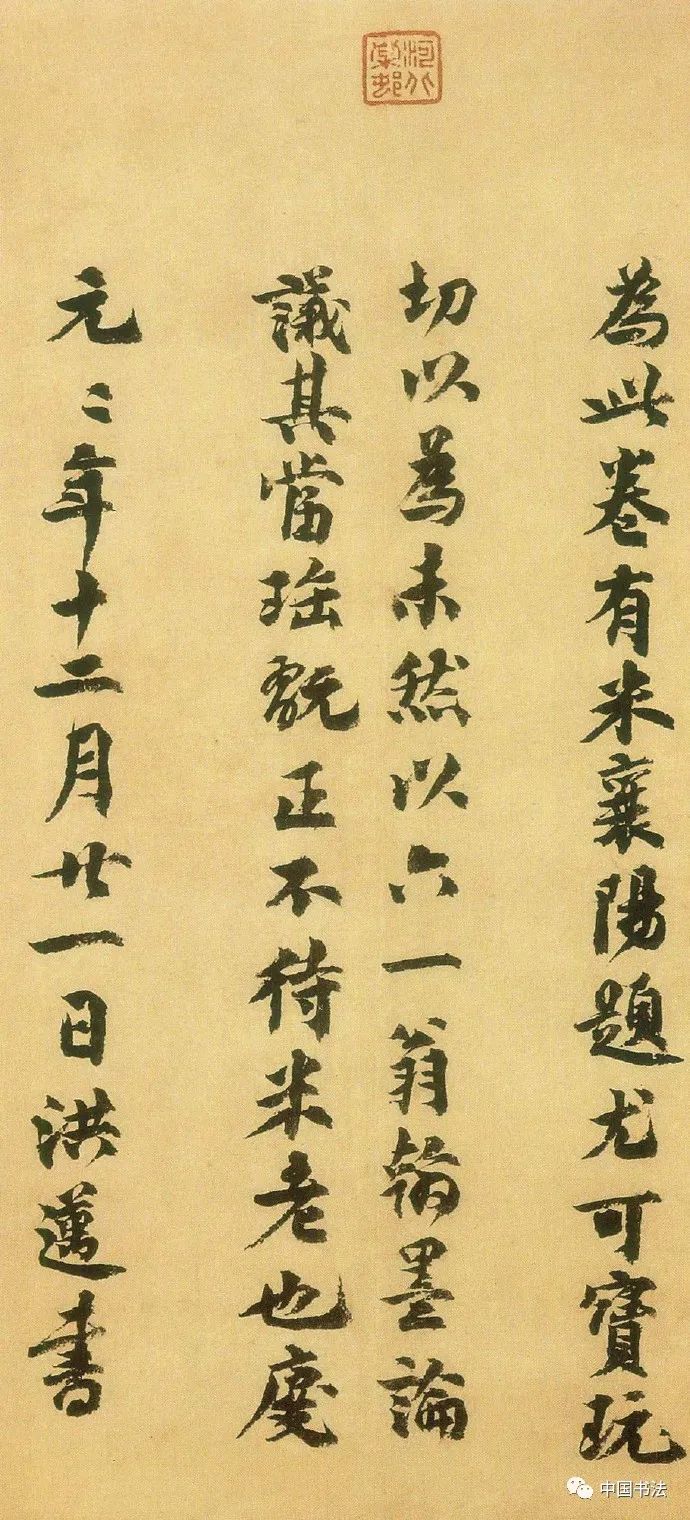 河北棠邨
為此卷有米襄陽題尤可寶玩
切以為未然以六一翁翰墨論
議其當珤翫正不待米老也慶
元〻年十二月廿一日洪邁書
中国书法